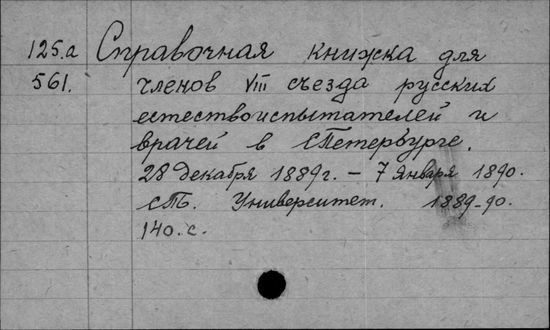 125.a Справочная книжка для
561. членов VIII съезда русских
естествоиспытателей и
врачей в СПетербурге.
28 декабря 1889г. – 7 января 1890.
СПб. Университет. 1889-90.
140.с.